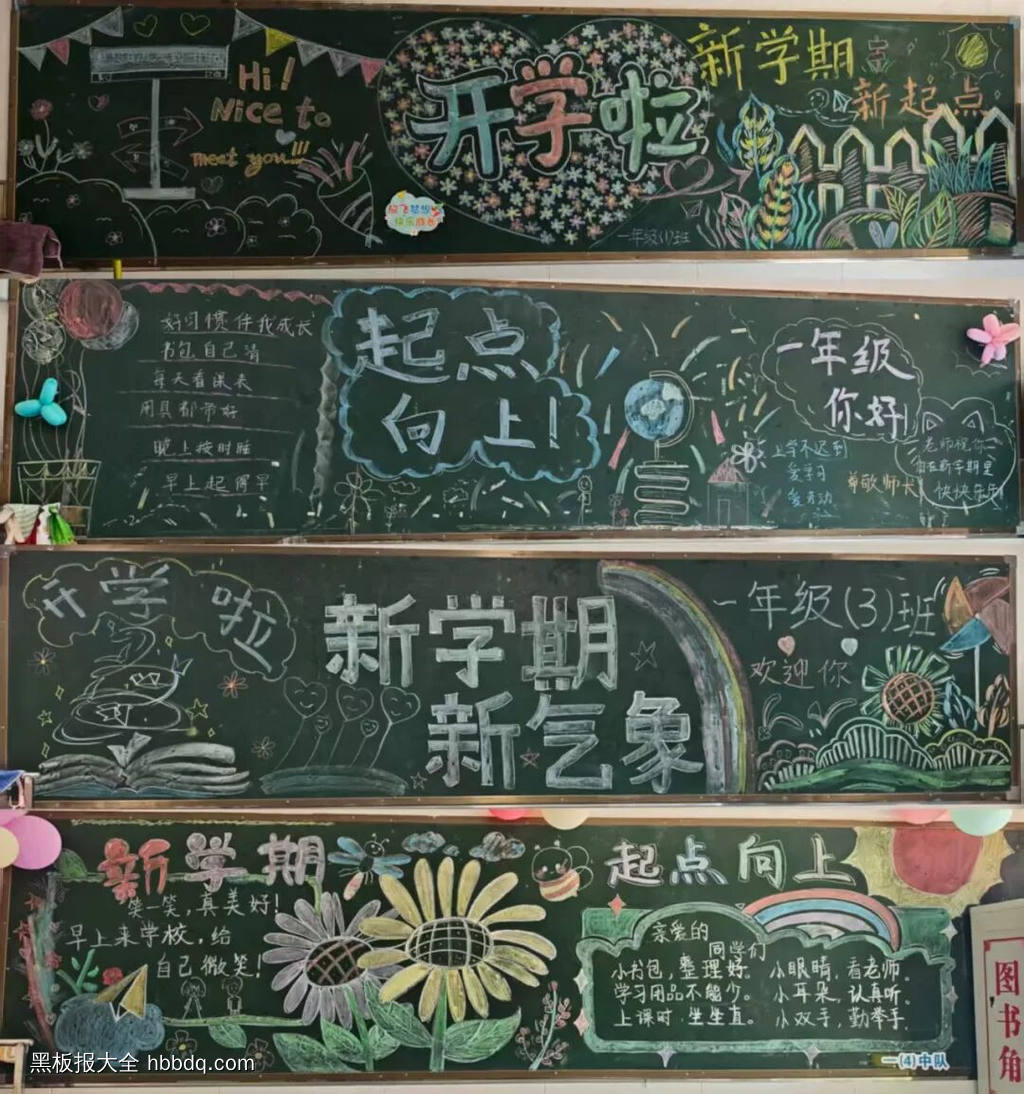 Hi!
Nice to
meet you!!!
开学啦
放飞梦想
快乐成长
新学期
新起点
一年级(1)班
好习惯伴我成长
书包自己清
每天看课表
用具都带好
晚上按时睡
早上起得早
起点
向上!
一年级
你好
上学不迟到
爱学习
爱劳动
尊敬师长
老师祝你
在新学期里
快快乐乐
开学啦
新学期
新气象
一年级(3)班
欢迎你
新学期
笑一笑,真美好!
早上来学校,给
自己微笑!
起点向上
亲爱的
同学们
小书包,整理好. 小眼睛,看老师.
学习用品不能少。 小耳朵,认真听。
上课时,坐坐直。 小双手,勤举手.
一(4)中队
图书角
黑板报大全 hbbdq.com